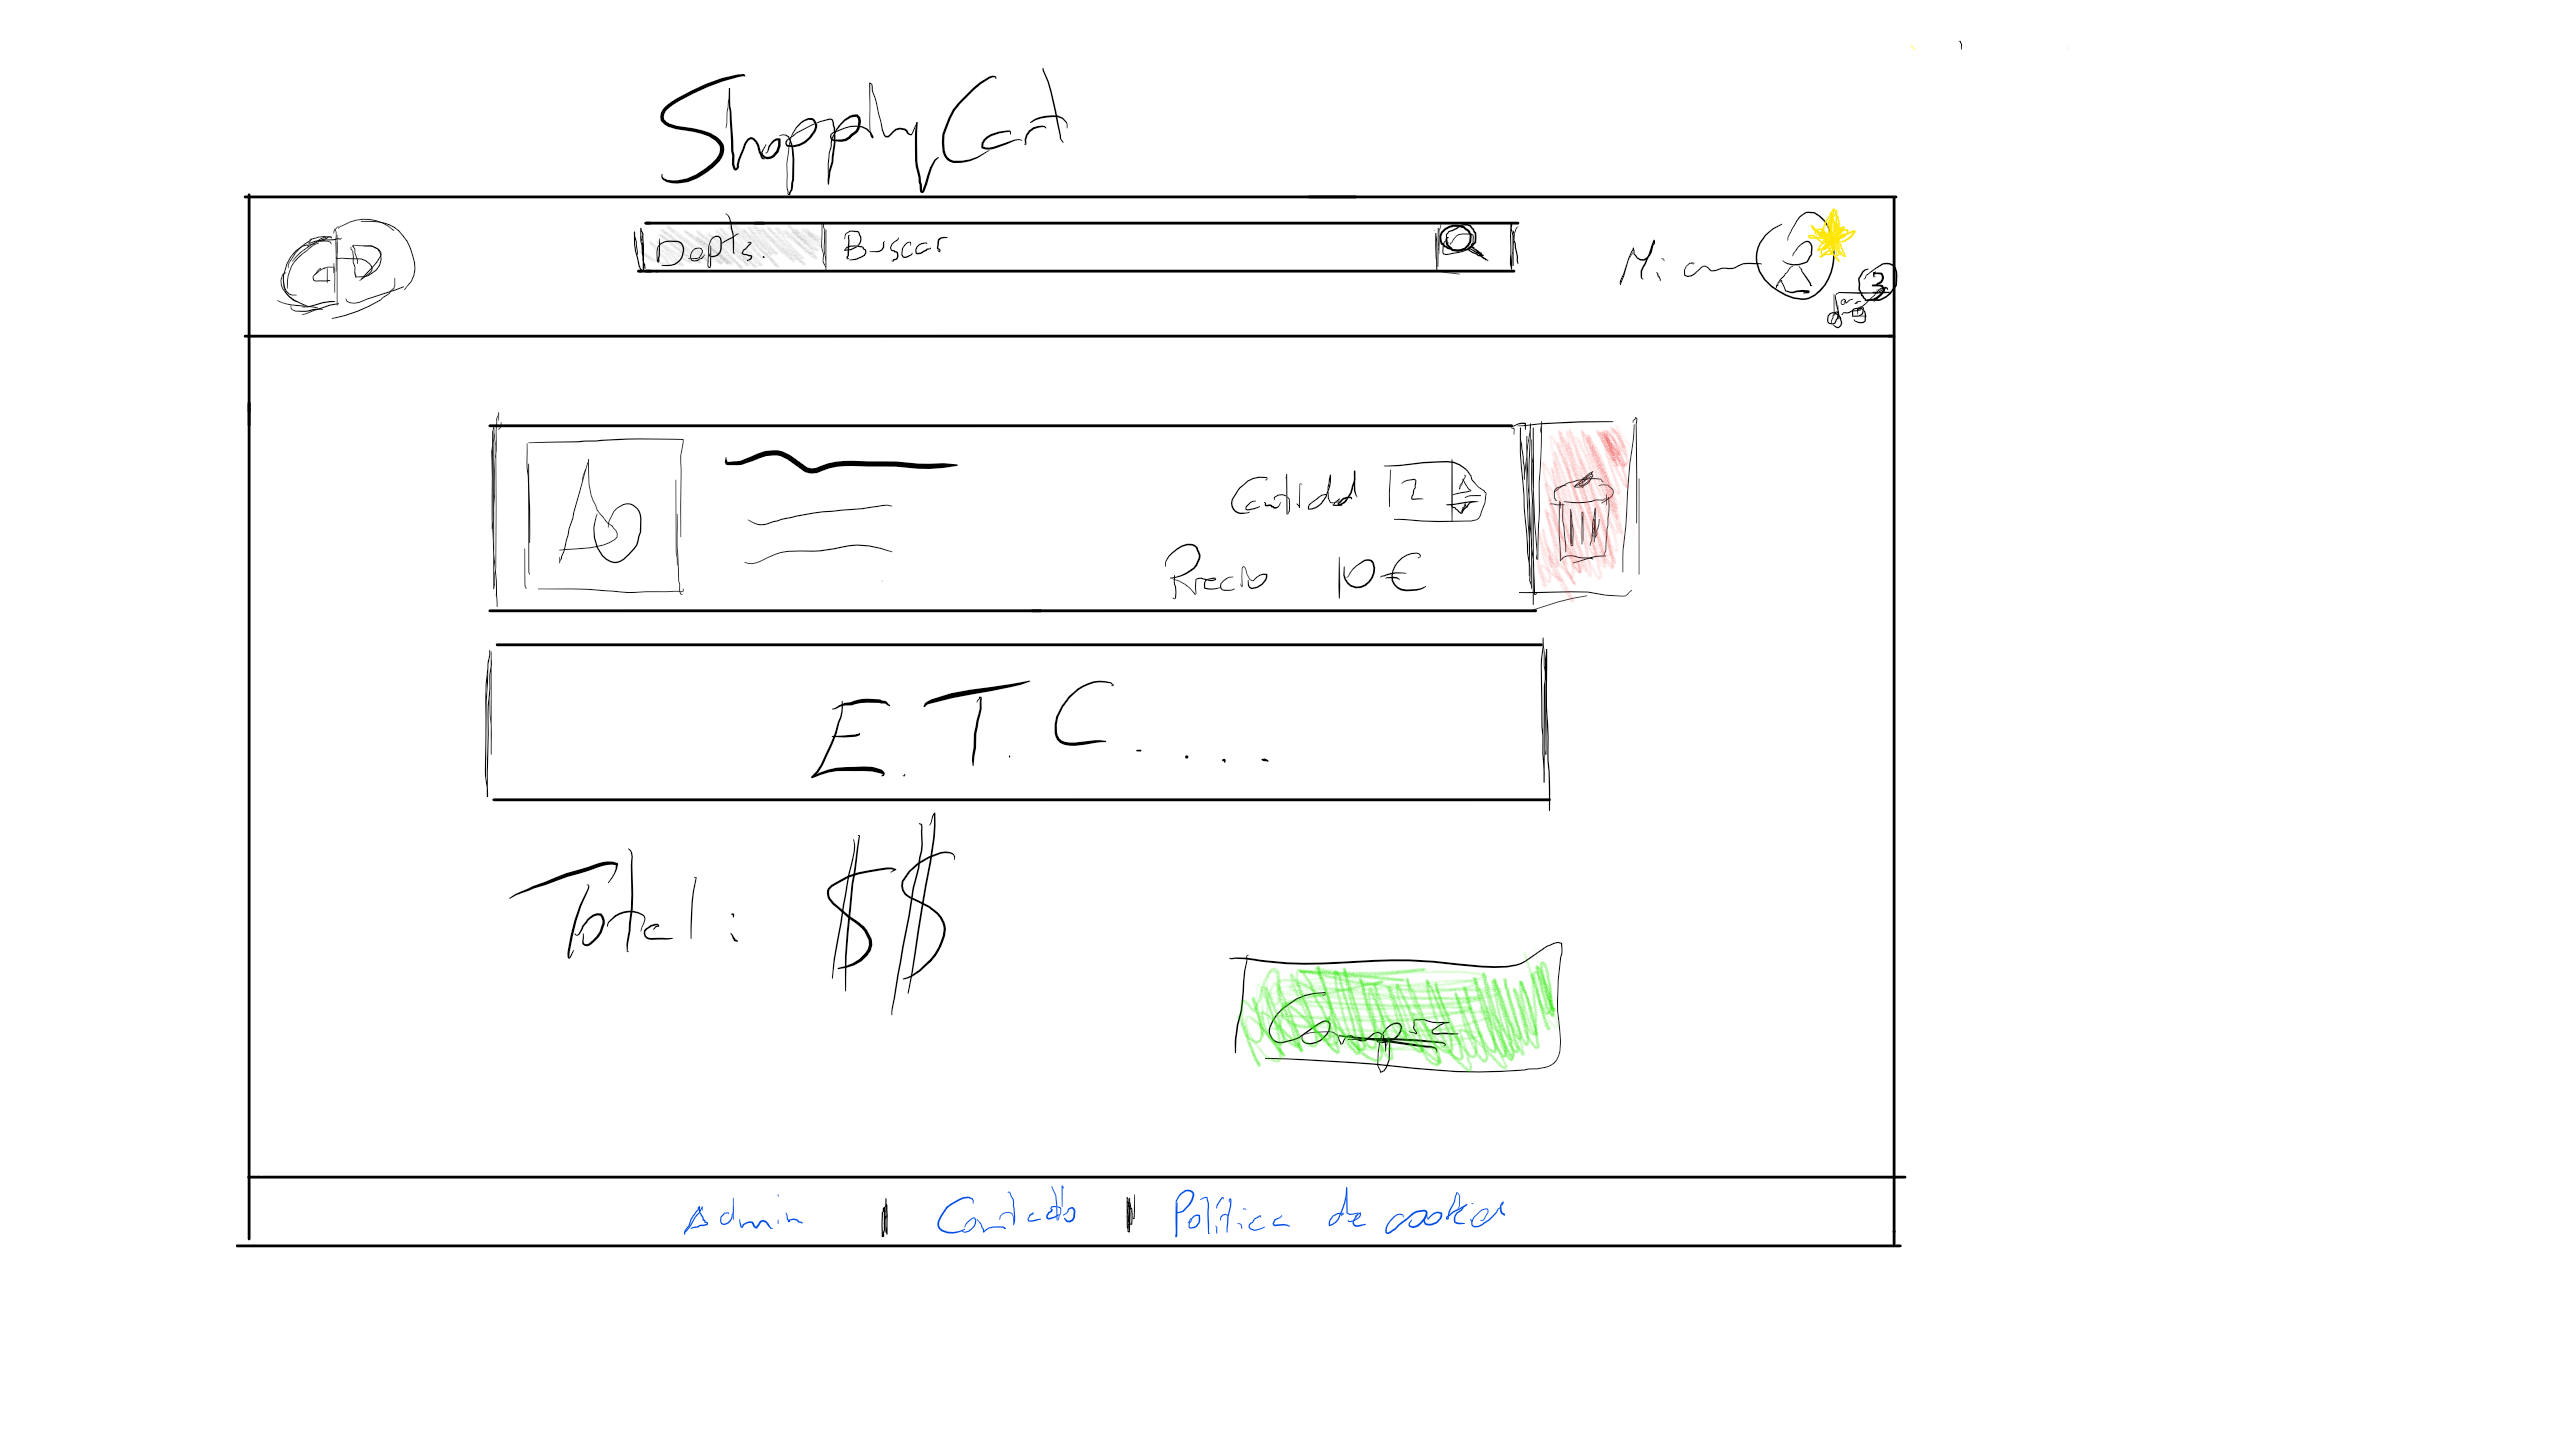 Shopping Cart
Depts. Buscar
Mi
3
Cantidad 2
Precio 10€
E.T.C....
Total: $$
Admin | Contacto | Política de cookies